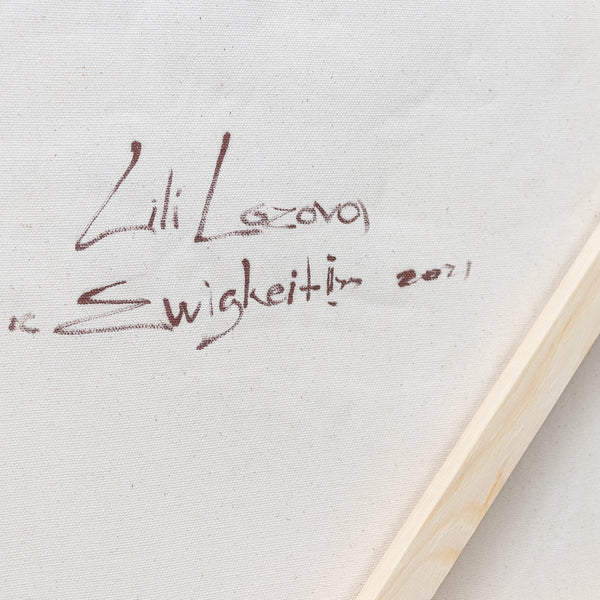 Lili Lazova
Ewigkeit 2021